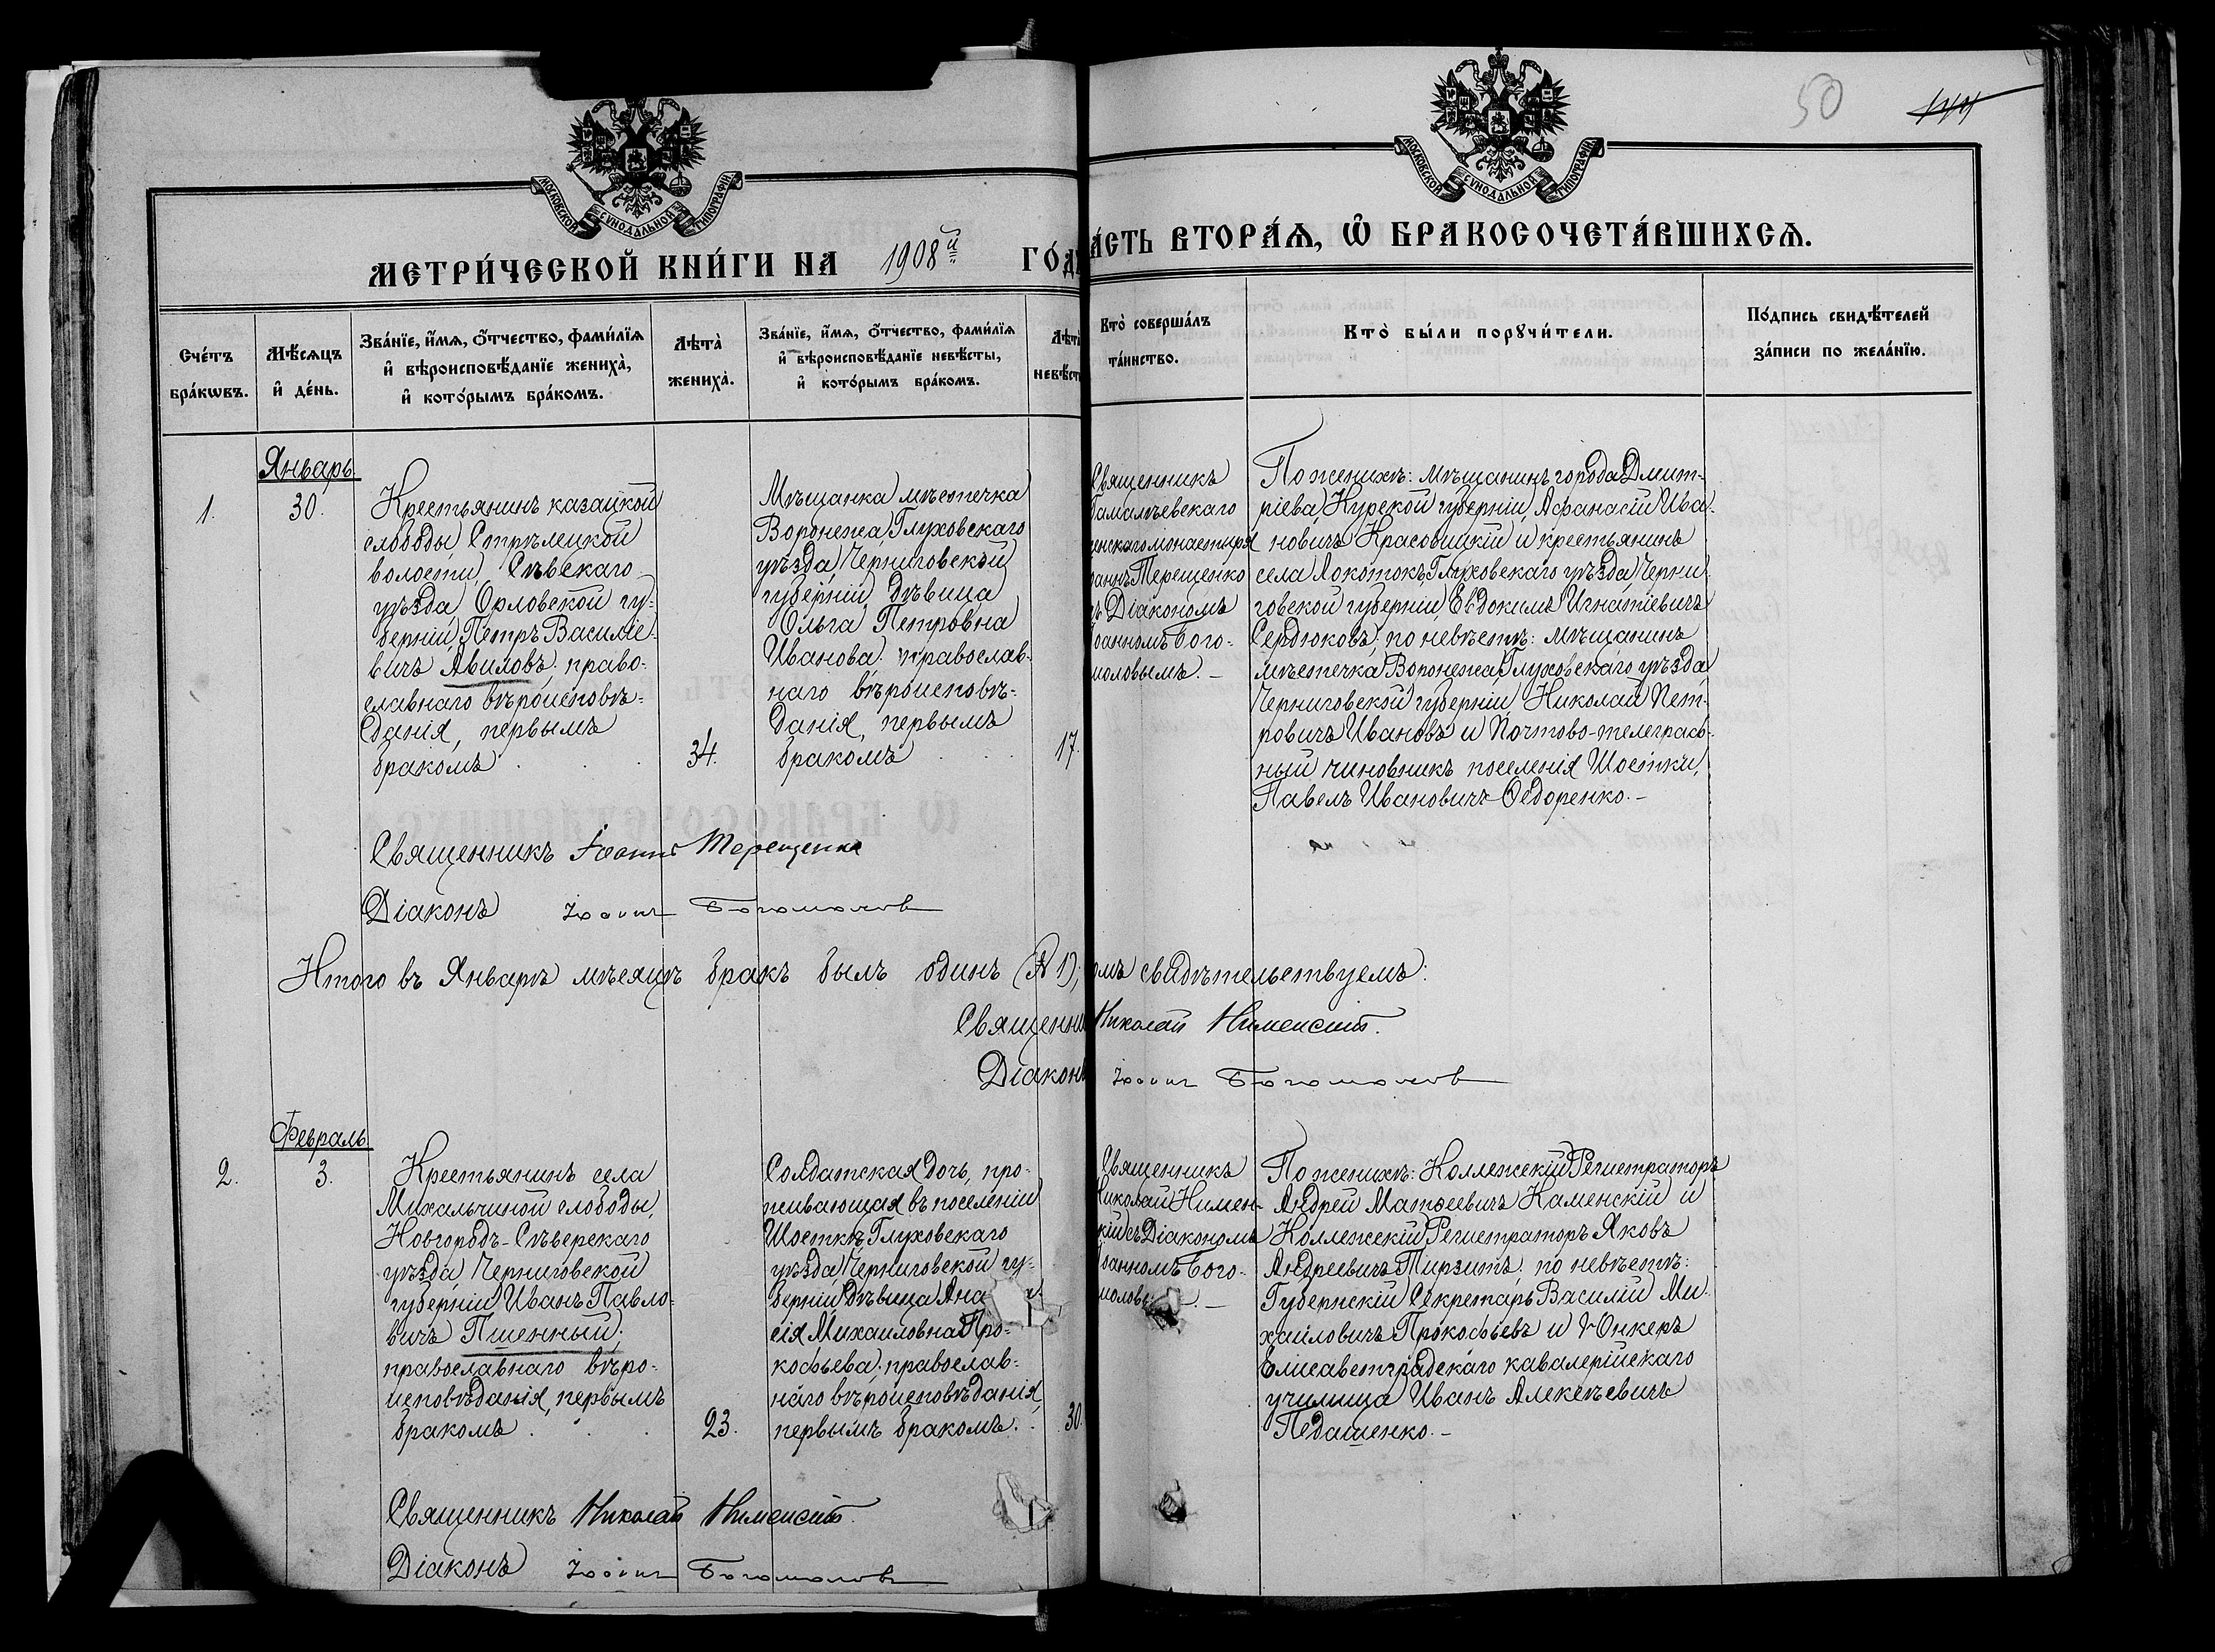 50
МОСКОВСКОЙ СѴНОДАЛЬНОЙ ТИПОГРАФІИ
МОСКОВСКОЙ СѴНОДАЛЬНОЙ ТИПОГРАФІИ
МЕТРИ́ЧЕСКОЙ КНИ́ГИ НА 1908й ГО́Д
А́СТЬ ВТОРА́Ѧ, Ѽ БРАКОСОЧЕТА́ВШИХСѦ.
Сче́тъ
бра́кѡвъ.
Мѣ́сяцъ
и҆ де́нь.
Зва́нїе, и҆́мѧ, ѻ҆́тчество, фами́лїѧ
и҆ вѣроисповѣ́данїе жениха̀,
и҆ кото́рымъ бра́комъ.
Лѣта̀
жениха̀.
Зва́нїе, и҆́мѧ, ѻ҆́тчество, фами́лїѧ
и҆ вѣроисповѣ́данїе невѣ́сты,
и҆ кото́рымъ бра́комъ.
Лѣта̀
невѣ́ст
Кто̀ соверша́лъ
та́инство.
Кто̀ бы́ли порꙋчи́тели.
По́дпись свидѣ́телей
за́писи по жела́нїю.
Январь
1.
30.
Крестьянинъ казацкой
слободы Стрѣлецкой
волости, Сѣвскаго
уѣзда, Орловской гу-
берніи, Петръ Василіе-
вичъ Авиловъ. право-
славнаго вѣроисповѣ-
данія, первымъ
бракомъ
34.
Мѣщанка мѣстечка
Воронежа, Глуховскаго
уѣзда, Черниговской
губерніи, дѣвица
Ольга Петровна
Иванова. православ-
наго вѣроисповѣ-
данія, первымъ
бракомъ
17.
Священникъ
Гамалѣевскаго
енскаго монастыря
оаннъ Терещенко
съ Діакономъ
Іоанномъ Бого-
моловымъ.-
По женихѣ: мѣщанинъ города Дмит-
ріева, Курской губерніи, Афанасій Ива-
новичъ Красовицкій и крестьянинъ
села Локотокъ, Глуховскаго уѣзда, Черни-
говской губерніи, Евдокимъ Игнатіевичъ
Сердюковъ; по невѣстѣ: мѣщанинъ
мѣстечка Воронежа, Глуховскаго уѣзда,
Черниговской губерніи, Николай Пет-
ровичъ Ивановъ и Почтово-телеграф-
ный чиновникъ поселенія Шостки,
Павелъ Ивановичъ Ѳедоренко.-
Священникъ Іоаннъ Терещенко
Діаконъ Іоаннъ Богомолов
Итого въ Январѣ мѣсяцѣ бракъ былъ одинъ (№ 1), омъ свидѣтельствуемъ:
Священни Николай Нименскій.
Діаконъ Іоаннъ Богомолов
Февраль
2.
3.
Крестьянинъ села
Михальчиной слободы,
Новгородъ-Сѣверскаго
уѣзда, Черниговской
губерніи, Иванъ Павло-
вичъ Пшенный;
православнаго вѣро-
исповѣданія, первымъ
бракомъ
23.
Солдатская дочь, про-
живающая въ поселеніи
Шосткѣ, Глуховскаго
уѣзда, Черниговской гу-
берніи, дѣвица Ана
сія Михаиловна Про-
кофьева; православ-
наго вѣроисповѣданія,
первымъ бракомъ.
30.
Священникъ
Николай Нимен-
скій съ Діакономъ
Іоанномъ Бого-
молов
По женихѣ: Коллежскій Регистраторъ
Андрей Матѳеевичъ Каменскій и
Коллежскій Регистраторъ Яковъ
Андреевичъ Тирзитъ; по невѣстѣ:
Губернскій Секретарь Василій Ми-
хаиловичъ Прокофьевъ и Юнкеръ
Елисаветградскаго кавалерійскаго
училища Иванъ Алексѣевичъ
Педашенко.-
Священникъ Николай Нименскій.
Діаконъ Іоаннъ Богомолов